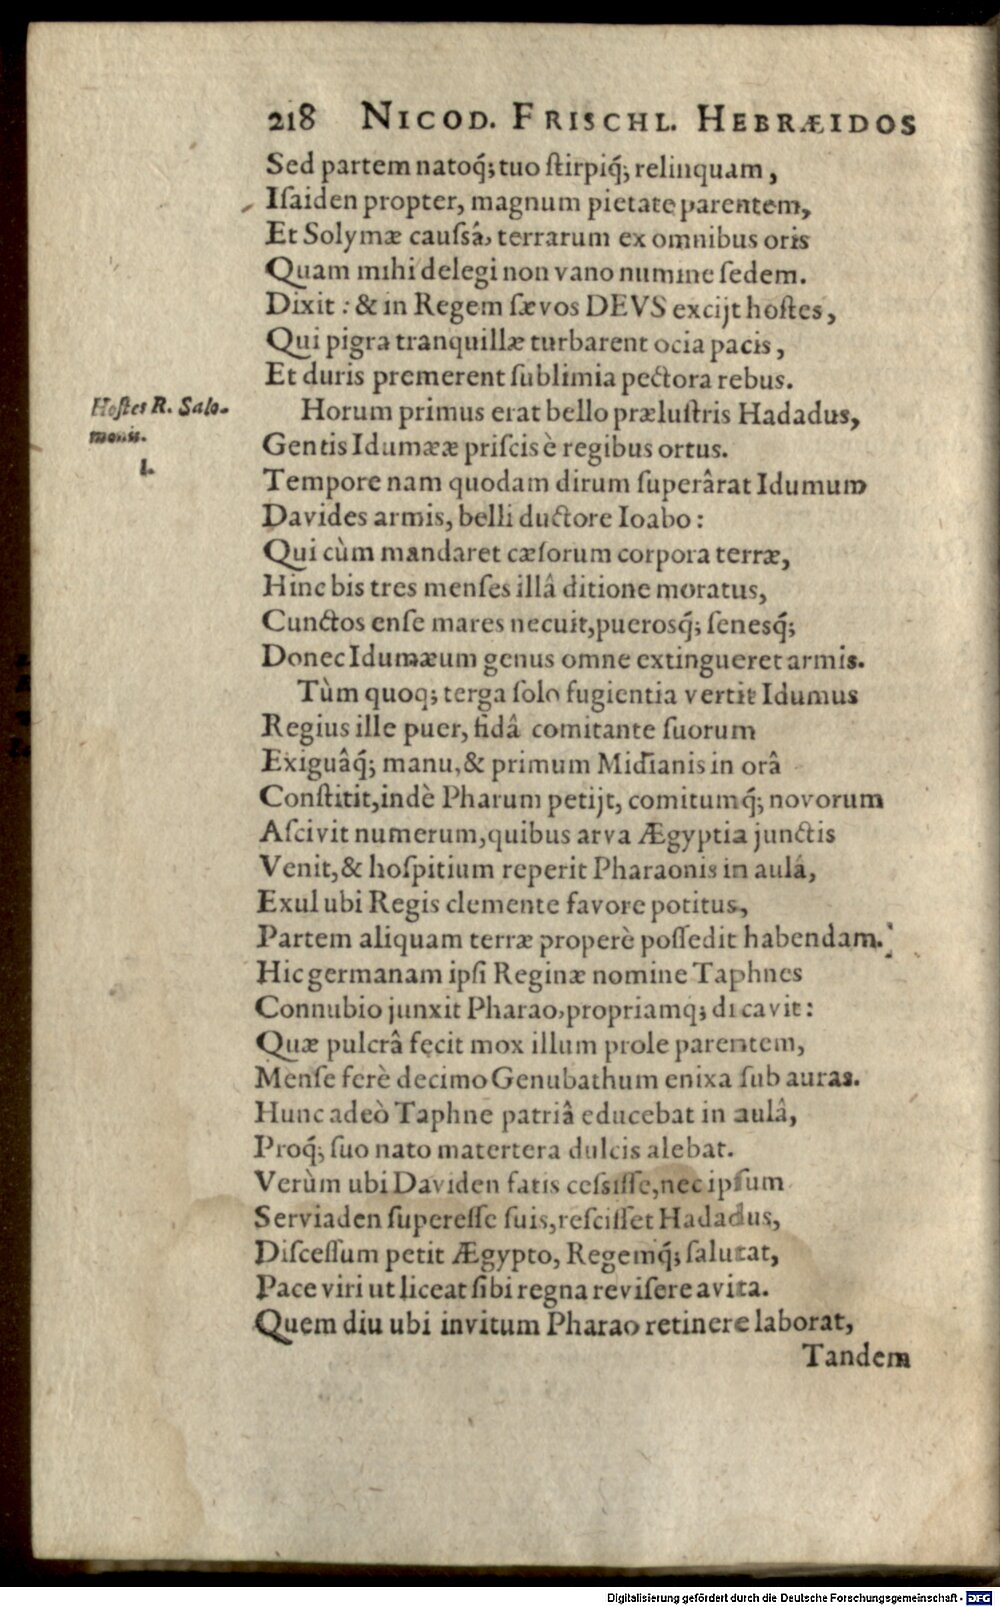 218 NICOD. FRISCHL. HEBRÆIDOS
Sed partem natoq́; tuo ſtirpiq́; relinquam,
Iſaiden propter, magnum pietate parentem,
Et Solymæ cauſsâ, terrarum ex omnibus oris
Quam mihi delegi non vano numine ſedem.
Dixit: & in Regem ſævos DEVS excijt hoſtes,
Qui pigra tranquillæ turbarent ocia pacis,
Et duris premerent ſublimia pectora rebus.
Hoſtes R. Salo-
monis.
I.
Horum primus erat bello præluſtris Hadadus,
Gentis Idumææ priſcis è regibus ortus.
Tempore nam quodam dirum ſuperârat Idumum
Davides armis, belli ductore Ioabo:
Qui cùm mandaret cæſorum corpora terræ,
Hinc bis tres menſes illâ ditione moratus,
Cunctos enſe mares necuit, puerosq́; ſenesq́;
Donec Idumæum genus omne extingueret armis.
Tùm quoq; terga ſolo fugientia vertit Idumus
Regius ille puer, fidâ comitante ſuorum
Exiguâq́; manu, & primum Midianis in orâ
Conſtitit, indè Pharum petijt, comitumq́; novorum
Aſcivit numerum, quibus arva Ægyptia junctis
Venit, & hoſpitium reperit Pharaonis in aulâ,
Exul ubi Regis clemente favore potitus,
Partem aliquam terræ properè poſſedit habendam.
Hic germanam ipſi Reginæ nomine Taphnes
Connubio junxit Pharao, propriamq; dicavit:
Quæ pulcrâ fecit mox illum prole parentem,
Menſe ferè decimo Genubathum enixa ſub auras.
Hunc adeò Taphne patriâ educebat in aulâ,
Proq́; ſuo nato matertera dulcis alebat.
Verùm ubi Daviden fatis ceſsiſſe, nec ipſum
Serviaden ſupereſſe ſuis, reſciſſet Hadadus,
Diſceſſum petit Ægypto, Regemq́; ſalutat,
Pace viri ut liceat ſibi regna reviſere avita.
Quem diu ubi invitum Pharao retinere laborat,
Tandem
Digitalisierung gefördert durch die Deutsche Forschungsgemeinschaft - DFG